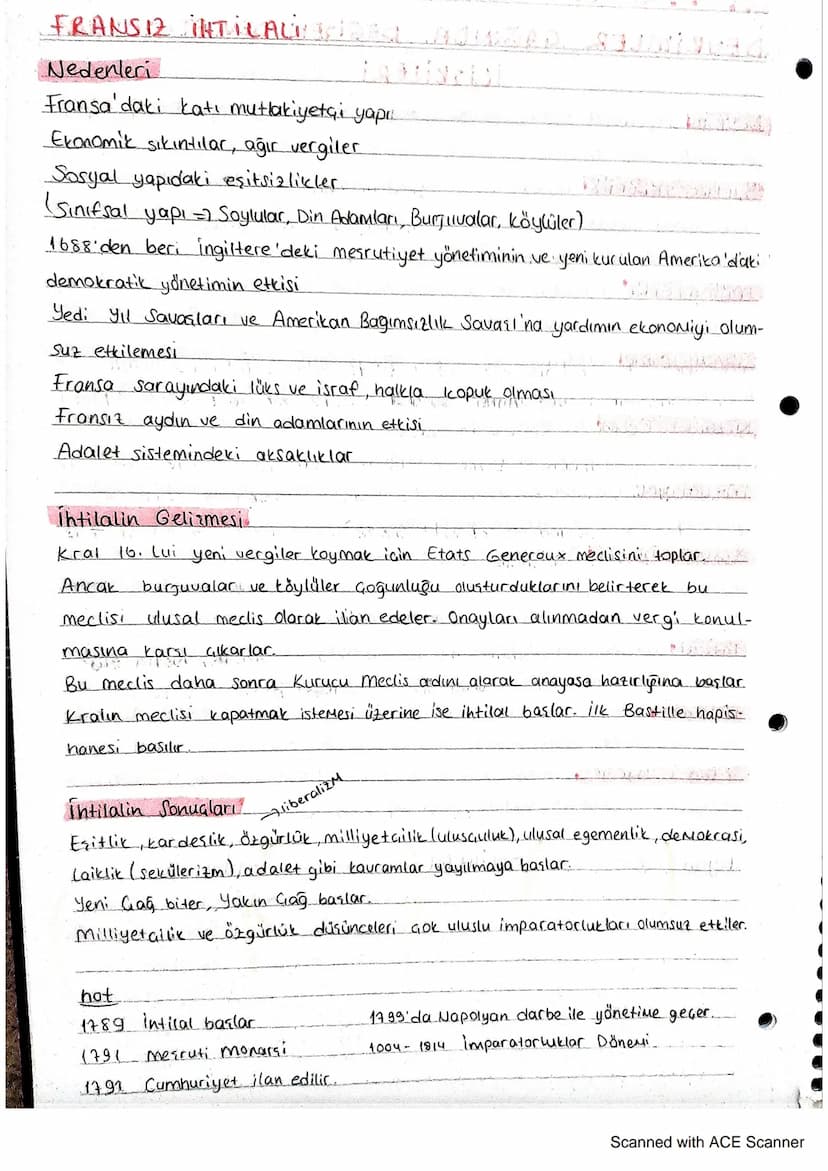 FRANSIZ İHTİLALİ
Nedenleri
Fransa'daki katı mutlakiyetçi yapı
Ekonomik sıkıntılar, ağır vergiler
Sosyal yapıdaki eşitsizlikler
(Sınıfsal yapı => Soylular, Din Adamları, Burjuvalar, Köylüler)
1688'den beri İngiltere'deki meşrutiyet yönetiminin ve yeni kurulan Amerika'daki
demokratik yönetimin etkisi
Yedi Yıl Savaşları ve Amerikan Bağımsızlık Savaşı'na yardımın ekonomiyi olum-
suz etkilemesi
Fransa sarayındaki lüks ve israf, halkla kopuk olması
Fransız aydın ve din adamlarının etkisi
Adalet sistemindeki aksaklıklar
İhtilalin Gelişmesi
Kral 16. Lui yeni vergiler koymak için Etats Generoux meclisini toplar.
Ancak burjuvalar ve köylüler çoğunluğu oluşturduklarını belirterek bu
meclisi ulusal meclis olarak ilan edeler. Onayları alınmadan vergi konul-
masına karşı çıkarlar.
Bu meclis daha sonra Kurucu Meclis adını alarak anayasa hazırlığına başlar
Kralın meclisi kapatmak istemesi üzerine ise ihtilal başlar. İlk Bastille hapis-
hanesi basılır.
İhtilalin Sonuçları
→liberalizm
Eşitlik, kardeşlik, özgürlük, milliyetçilik (ulusçuluk), ulusal egemenlik, demokrasi,
Laiklik (sekülerizm), adalet gibi kavramlar yayılmaya başlar.
Yeni Çağ biter, Yakın Çağ başlar.
Milliyetçilik ve özgürlük düşünceleri çok uluslu imparatorlukları olumsuz etkiler.
not
1789 İhtilal başlar
1799'da Napolyan darbe ile yönetime geçer.
1791 meşruti monarşi
1004-1814 İmparatorluklar Dönemi.
1792 Cumhuriyet ilan edilir.
Scanned with ACE Scanner